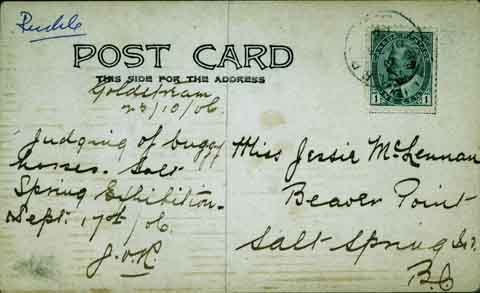 Ruckle
POST CARD
THIS SIDE FOR THE ADDRESS
Goldstream
23/10/06.
Judging of buggy
horses. Salt
Spring Exhibition.
Sept. 17th /06.
J. 
Miss Jessie McLennan
Beaver Point
Salt Spring Is.
B.C
1
1